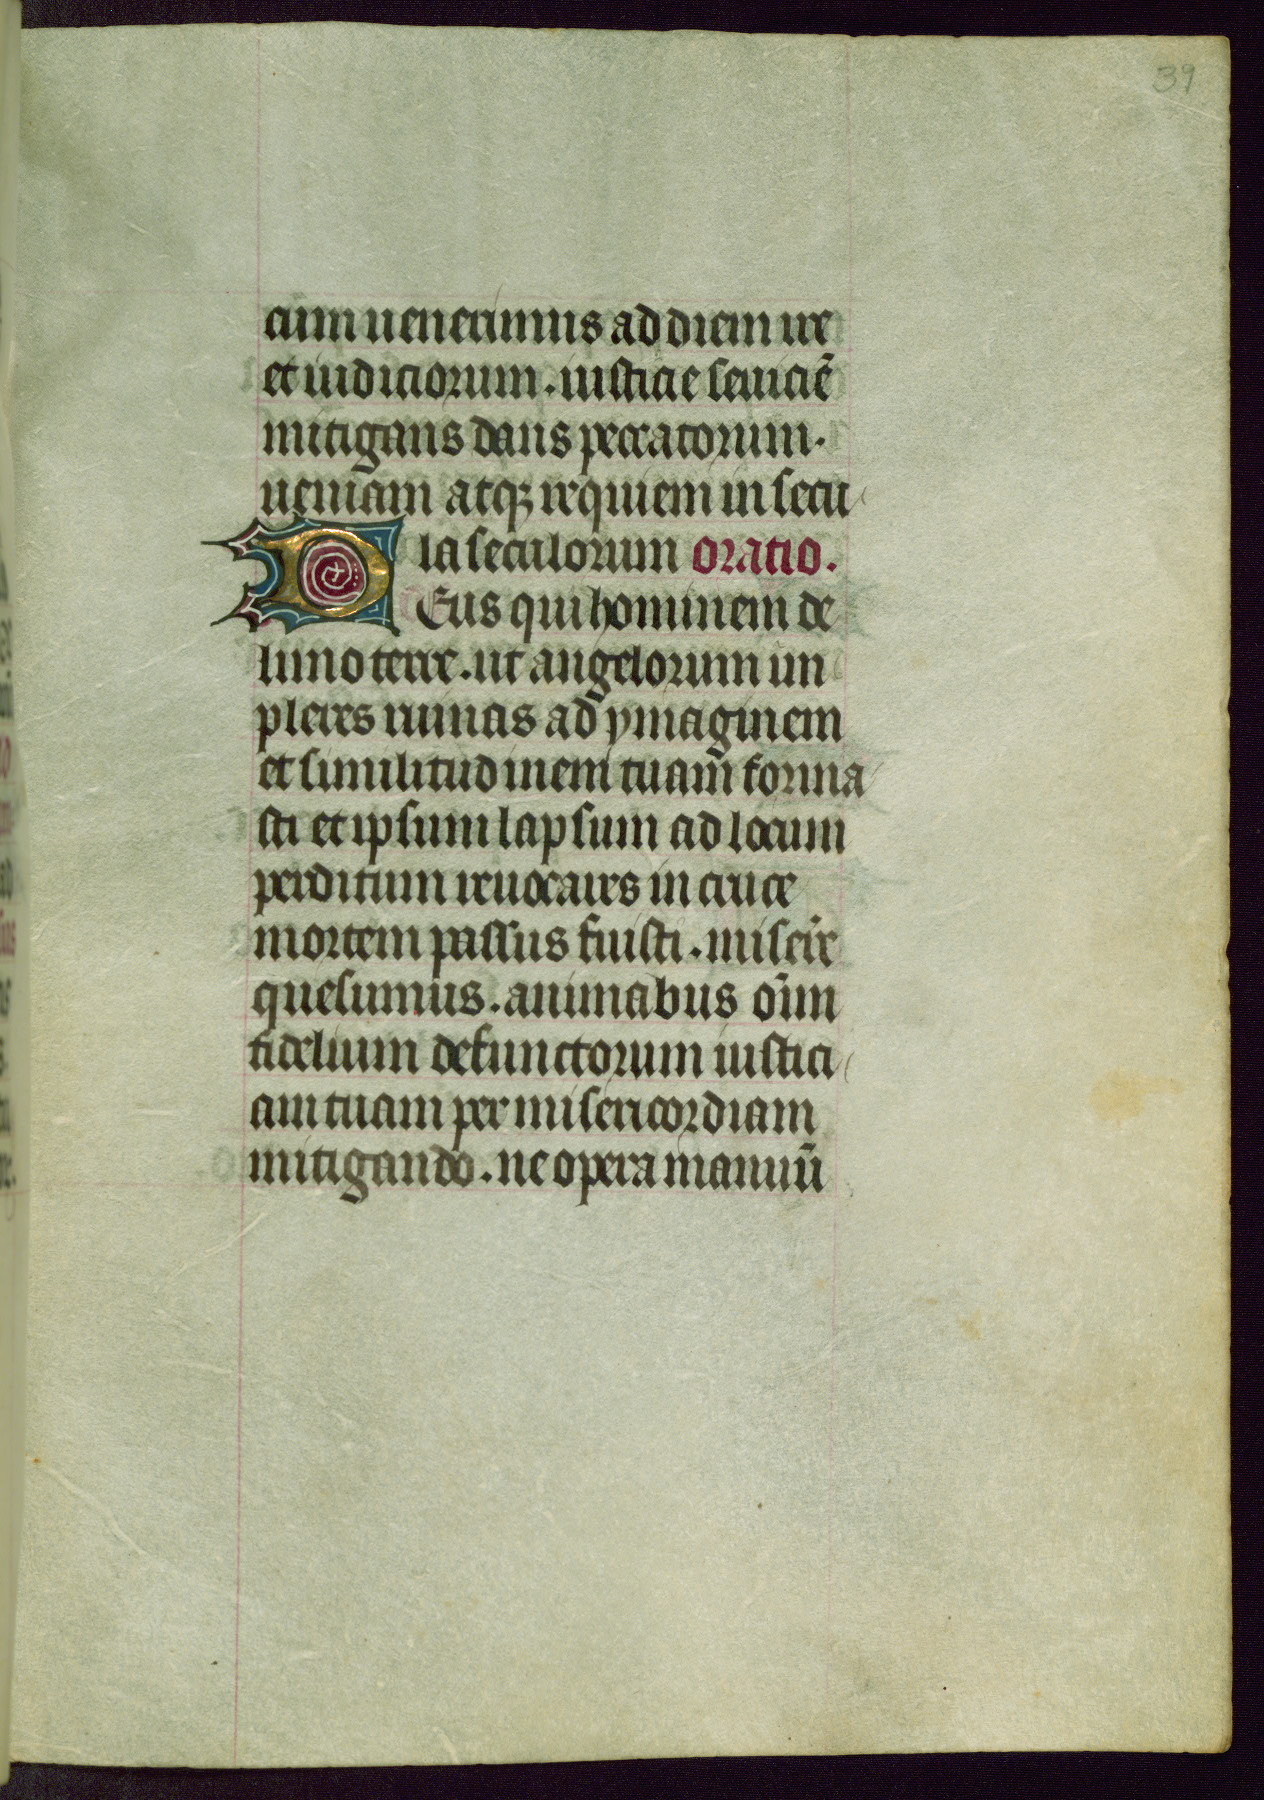 39
cum uenerimus ad diem ire
et iudiciorum. iusticie seuiciē
mitigans dans peccatorum.
ueniam atqꝫ requiem in secu
la seculorum oratio.
DEus qui hominem de
limo terre. ut angelorum im
pleres ruinas ad ymaginem
et similitudinem tuam forma
sti et ipsum lapsum ad locum
perditum reuocares in cruce
mortem passus fuisti. miserere
quesumus. animabus om̄
fidelium defunctorum iustici
am tuam per misericordiam
mitigando. ne opera manuū